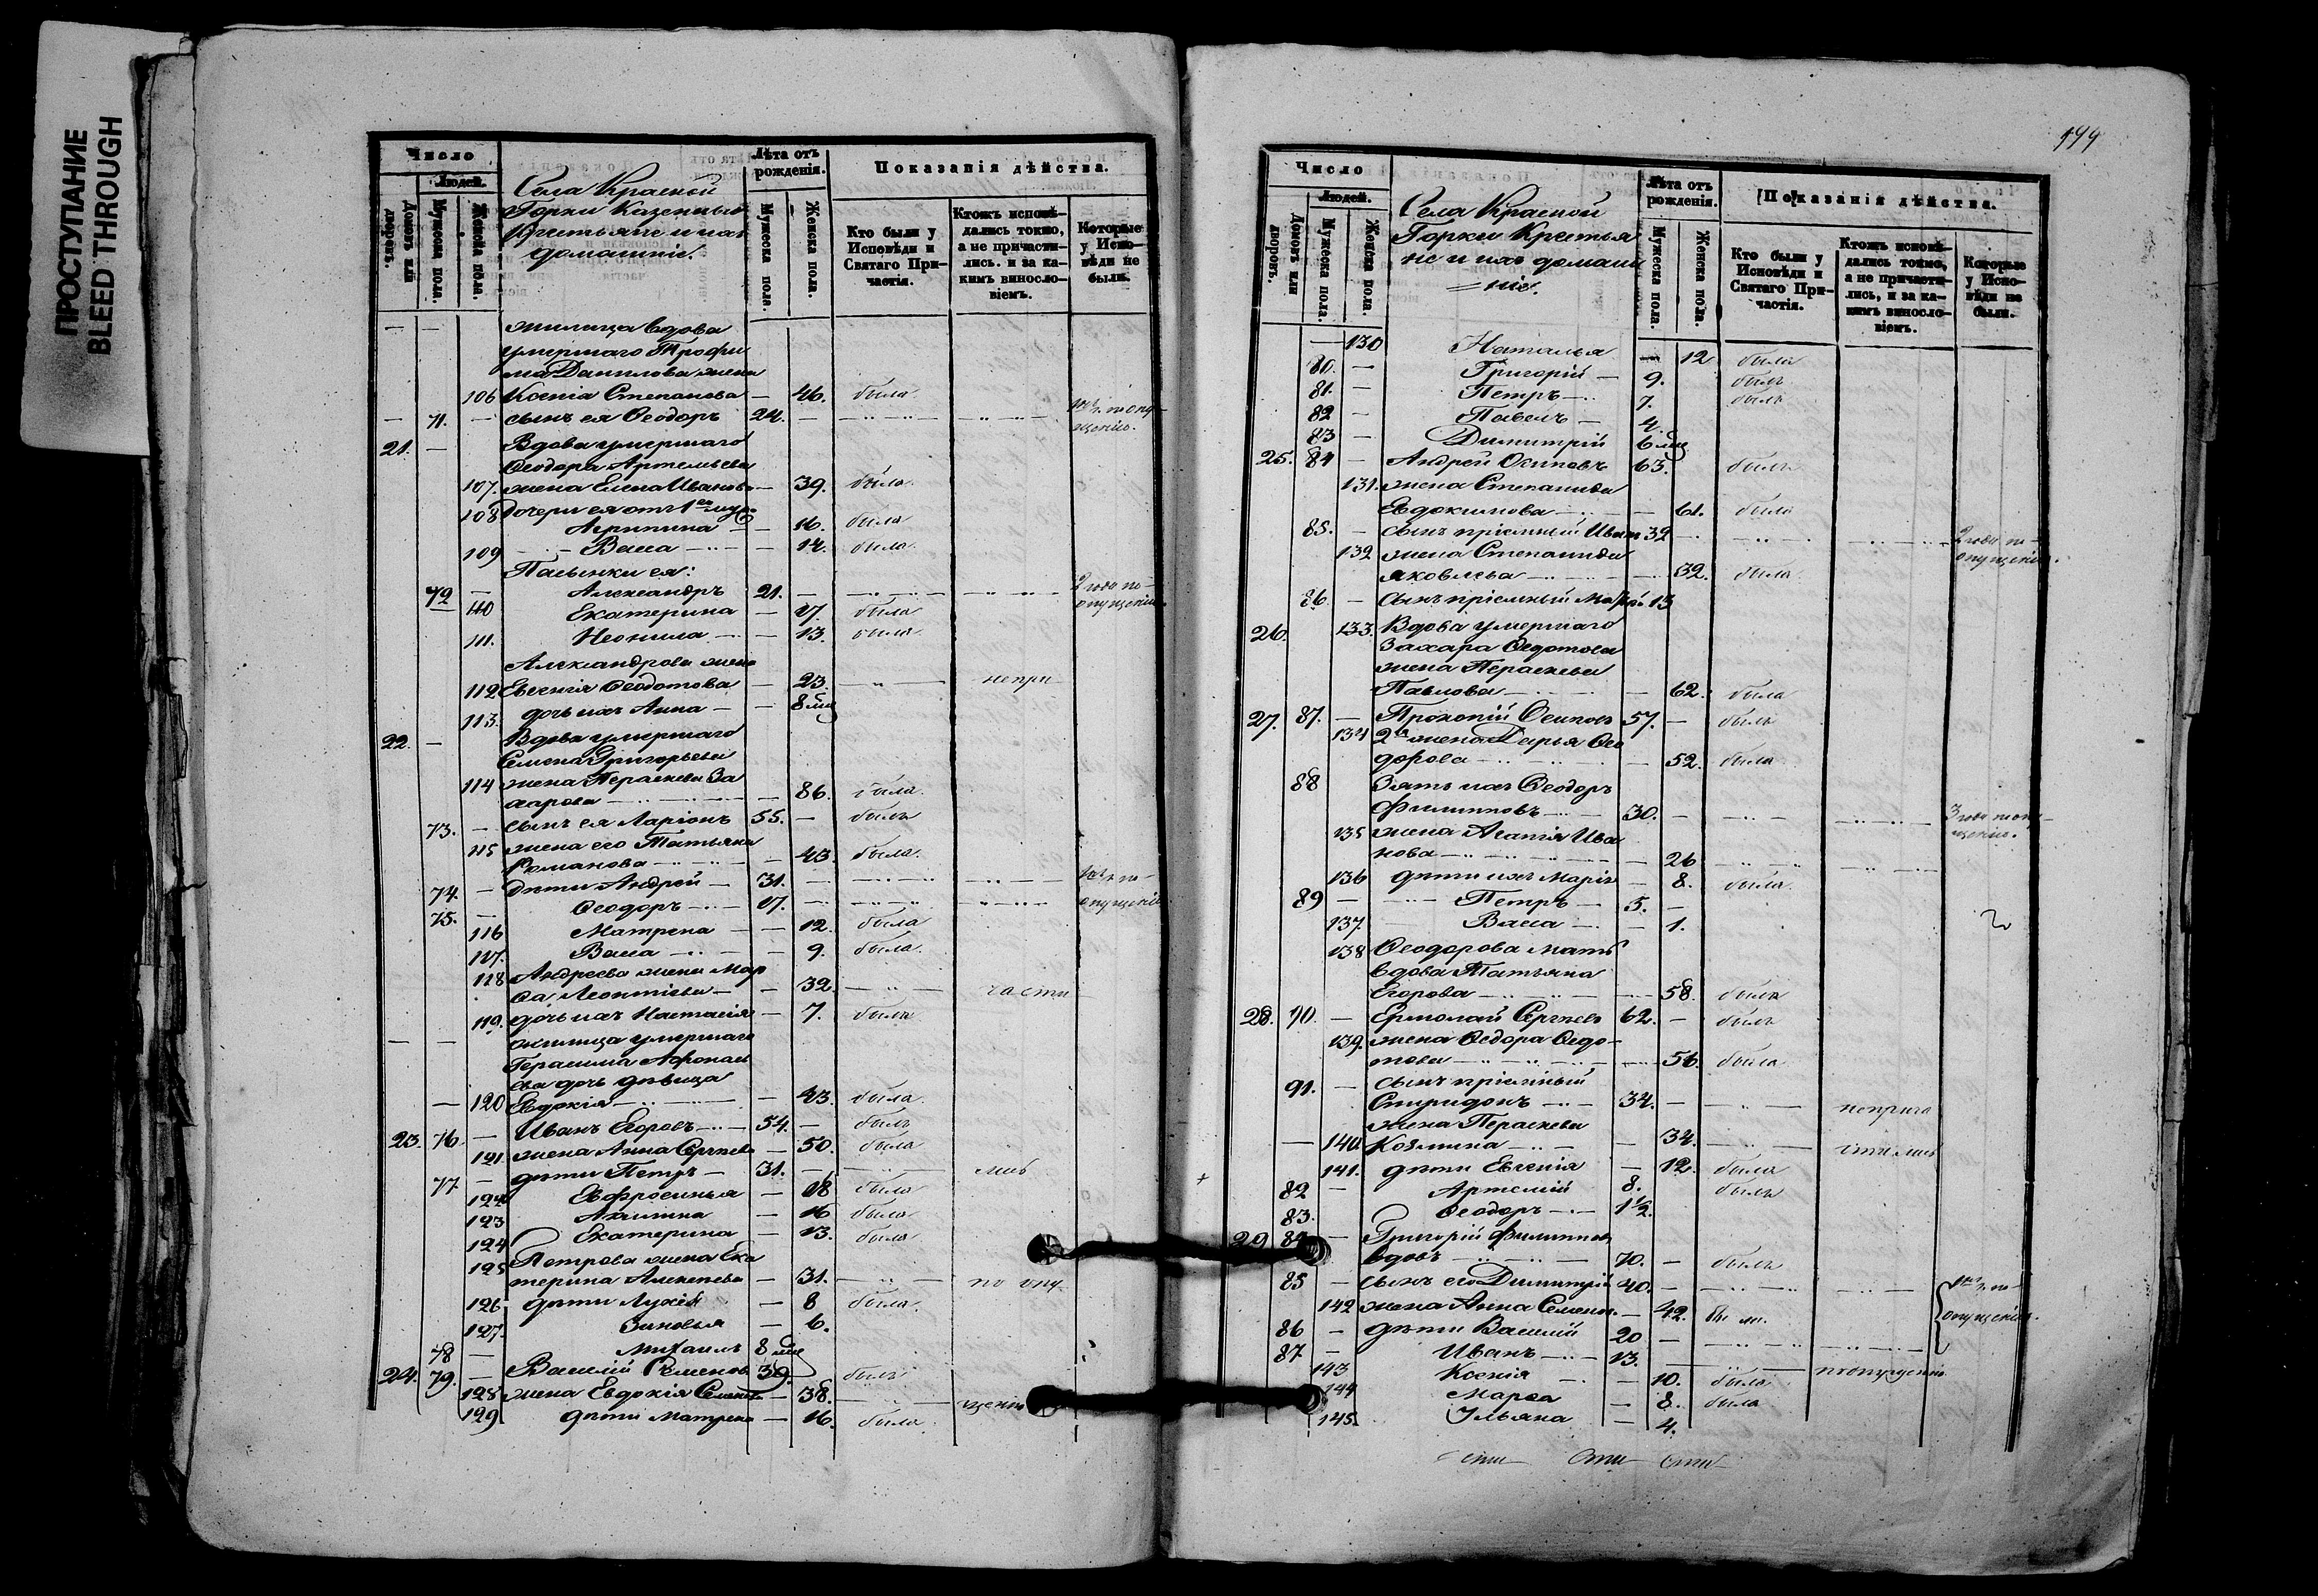 ПРОСТУПАНИЕ
BLEED THROUGH
Число
Людей.
Домовъ или дворовъ.
Мужеска пола.
Женска пола.
Села Красной
Горки Казенные
Крестьяне и ихъ
домашніе.
Лѣта отъ рожденія.
Мужеска пола.
Женска пола.
Показанія дѣйства.
Кто были у Исповѣди и Святаго Причастія.
Ктожъ исповѣдались токмо, а не причастились. и за какимъ винословіемъ.
Которые у Исповѣди не были.
жилица вдова
умершаго Трофи
ма Данилова жена
106 Ксенія Степанова — 46. была
— 71. — сынъ ея Ѳеодоръ 24. —
21. — Вдова умершаго
Ѳеодора Артемьева
107. жена Елена Иванова — 39. была
108 Дочери ея отъ 1го мужа
Агрипина — 16. была
109 Васса — 14. была
Пасынки ея:
72 — Александръ 21. — 2 года по опущенію
110 Екатерина — 17. была
111. Неонила — 13. была
Александрова жена
112 Евгенія Ѳеодотова — 23. — непри
113. дочь ихъ Анна — 8 мц
22. — Вдова умершаго
Семена Григорьева
114 жена Параскева За
харова — 86. была
73. — сынъ ея Ларіонъ 55. — былъ
115 жена его Татьяна
Романова — 43. была
74. — дѣти Андрей — 31. —
75. — Ѳеодоръ — 17. — опущенію
116 Матрена — 12. была
117. Васса — 9. была
118 Андреева жена Мар
ѳа Леонтіева — 32. — части
119. дочь ихъ Настасія — 7. была
— — жилица умершаго
Герасима Афонась
ева дочь дѣвица
— 120 Евдокія — 43. была
23. 76. — Иванъ Егоровъ — 54. — былъ
121 жена Анна Сергѣева — 50. была
77 — дѣти Петръ — 31. — лись
122 Евфросинья — 18 была
123 Акилина — 16 была
124 Екатерина — 13. была
125 Петрова жена Ека
терина Алексѣева — 31. — по опу
126 дѣти Лукія — 8 была
127. Зиновья — 6.
78 — Михаилъ 8 мц
24. 79. — Василій Семенов 39. былъ
128 жена Евдокія Семенова — 38. — щенію
129 дѣти Матрена — 16. была
199
Число
Людей.
Домовъ или дворовъ.
Мужеска пола.
Женска пола.
Села Красной
Горки Крестья
не и ихъ домаш
=ніе.
Лѣта отъ рожденія.
Мужеска пола.
Женска пола.
Показанія дѣйства.
Кто были у Исповѣди и Святаго Причастія.
Ктожъ исповѣдались токмо, а не причастились, и за какимъ винословіемъ.
Которые у Исповѣди не были.
— 130 Наталья — 12 была
80. — Григорій — 9. былъ
81. — Петръ — 7. былъ
82 — Павелъ — 4.
83 — Димитрій 6 мц
25. 84 — Андрей Осиповъ 63. былъ
131. жена Степанида
Евдокимова — 61. была
85. — сынъ пріемный Иванъ 32 — 2 года по опущенію.
132 жена Степанида
Яковлева — 32. была
86. — Сынъ пріемный 13
26. 133. Вдова умершаго
Захара Ѳедотова
жена Параскева
Павлова — 62. была
27. 87. — Прокопій Осиповъ 57. — былъ
134 2я жена Дарья Ѳео
дорова — 52. была
88 Зять ихъ Ѳеодоръ
Филипповъ — 30. — 3 года по опущенію.
135 жена Агапія Ива
нова — 26
136 дѣти ихъ Марія — 8. была
89 — Петръ — 5. —
137. Васса — 1.
138 Ѳеодорова мать
вдова Татьяна
Егорова — 58. была
28. 90. — Ермолай Сергѣевъ 62. — былъ
139. жена Ѳедора Ѳедо-
това — 56. была
91. — сынъ пріемный
Спиридонъ — 34. — неприча
жена Параскева
— 140. Козмина — 34. — стились
141. дѣти Евгенія — 12. была
82 — Артемій 8. былъ
83. Ѳеодоръ — 1½.
29 84 — Григорій Филиппов
вдовъ — 70. — былъ
85 — сынъ его Димитрій 40. —
142 жена Анна Семенов. — 42.
86 — дѣти Василій 20 — опущенію.
87 — Иванъ — 13.
143 Ксенія — 10. была
144 Марѳа — 8. была
145. Ульяна — 4.